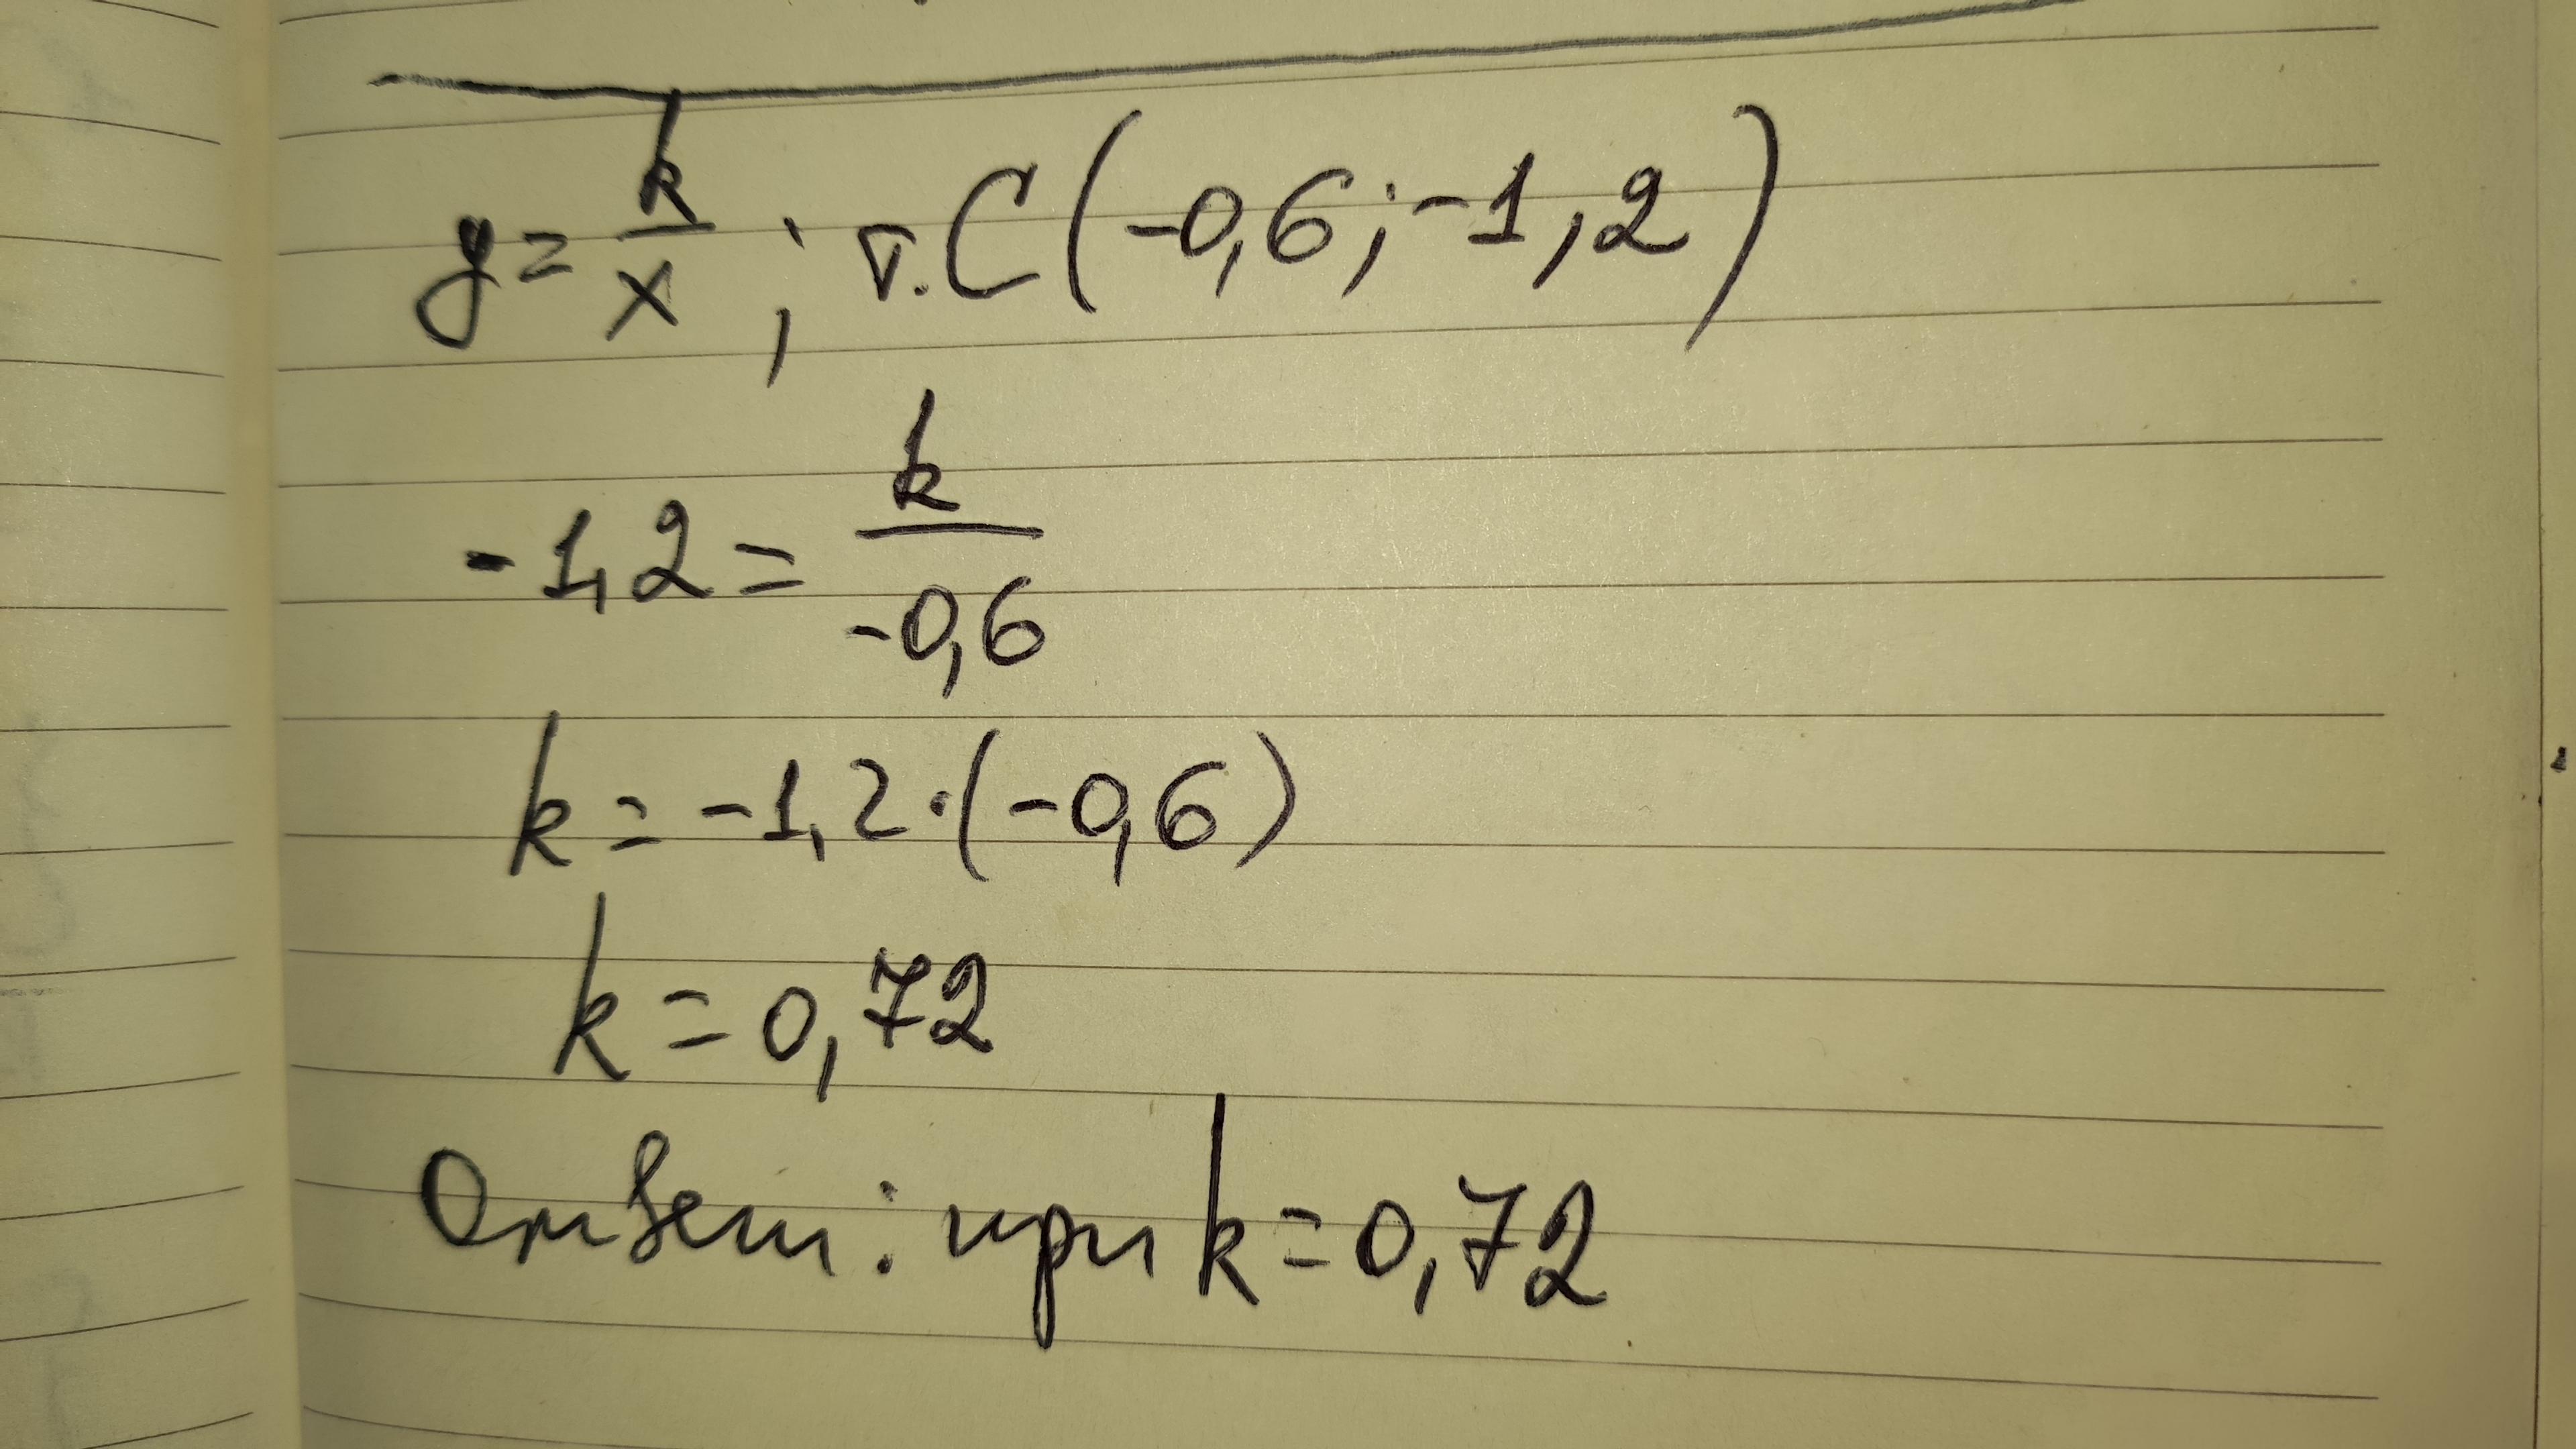 y = k/x ; т. C (-0,6; -1,2)
-1,2 = k/-0,6
k = -1,2 · (-0,6)
k = 0,72
Ответ: при k = 0,72